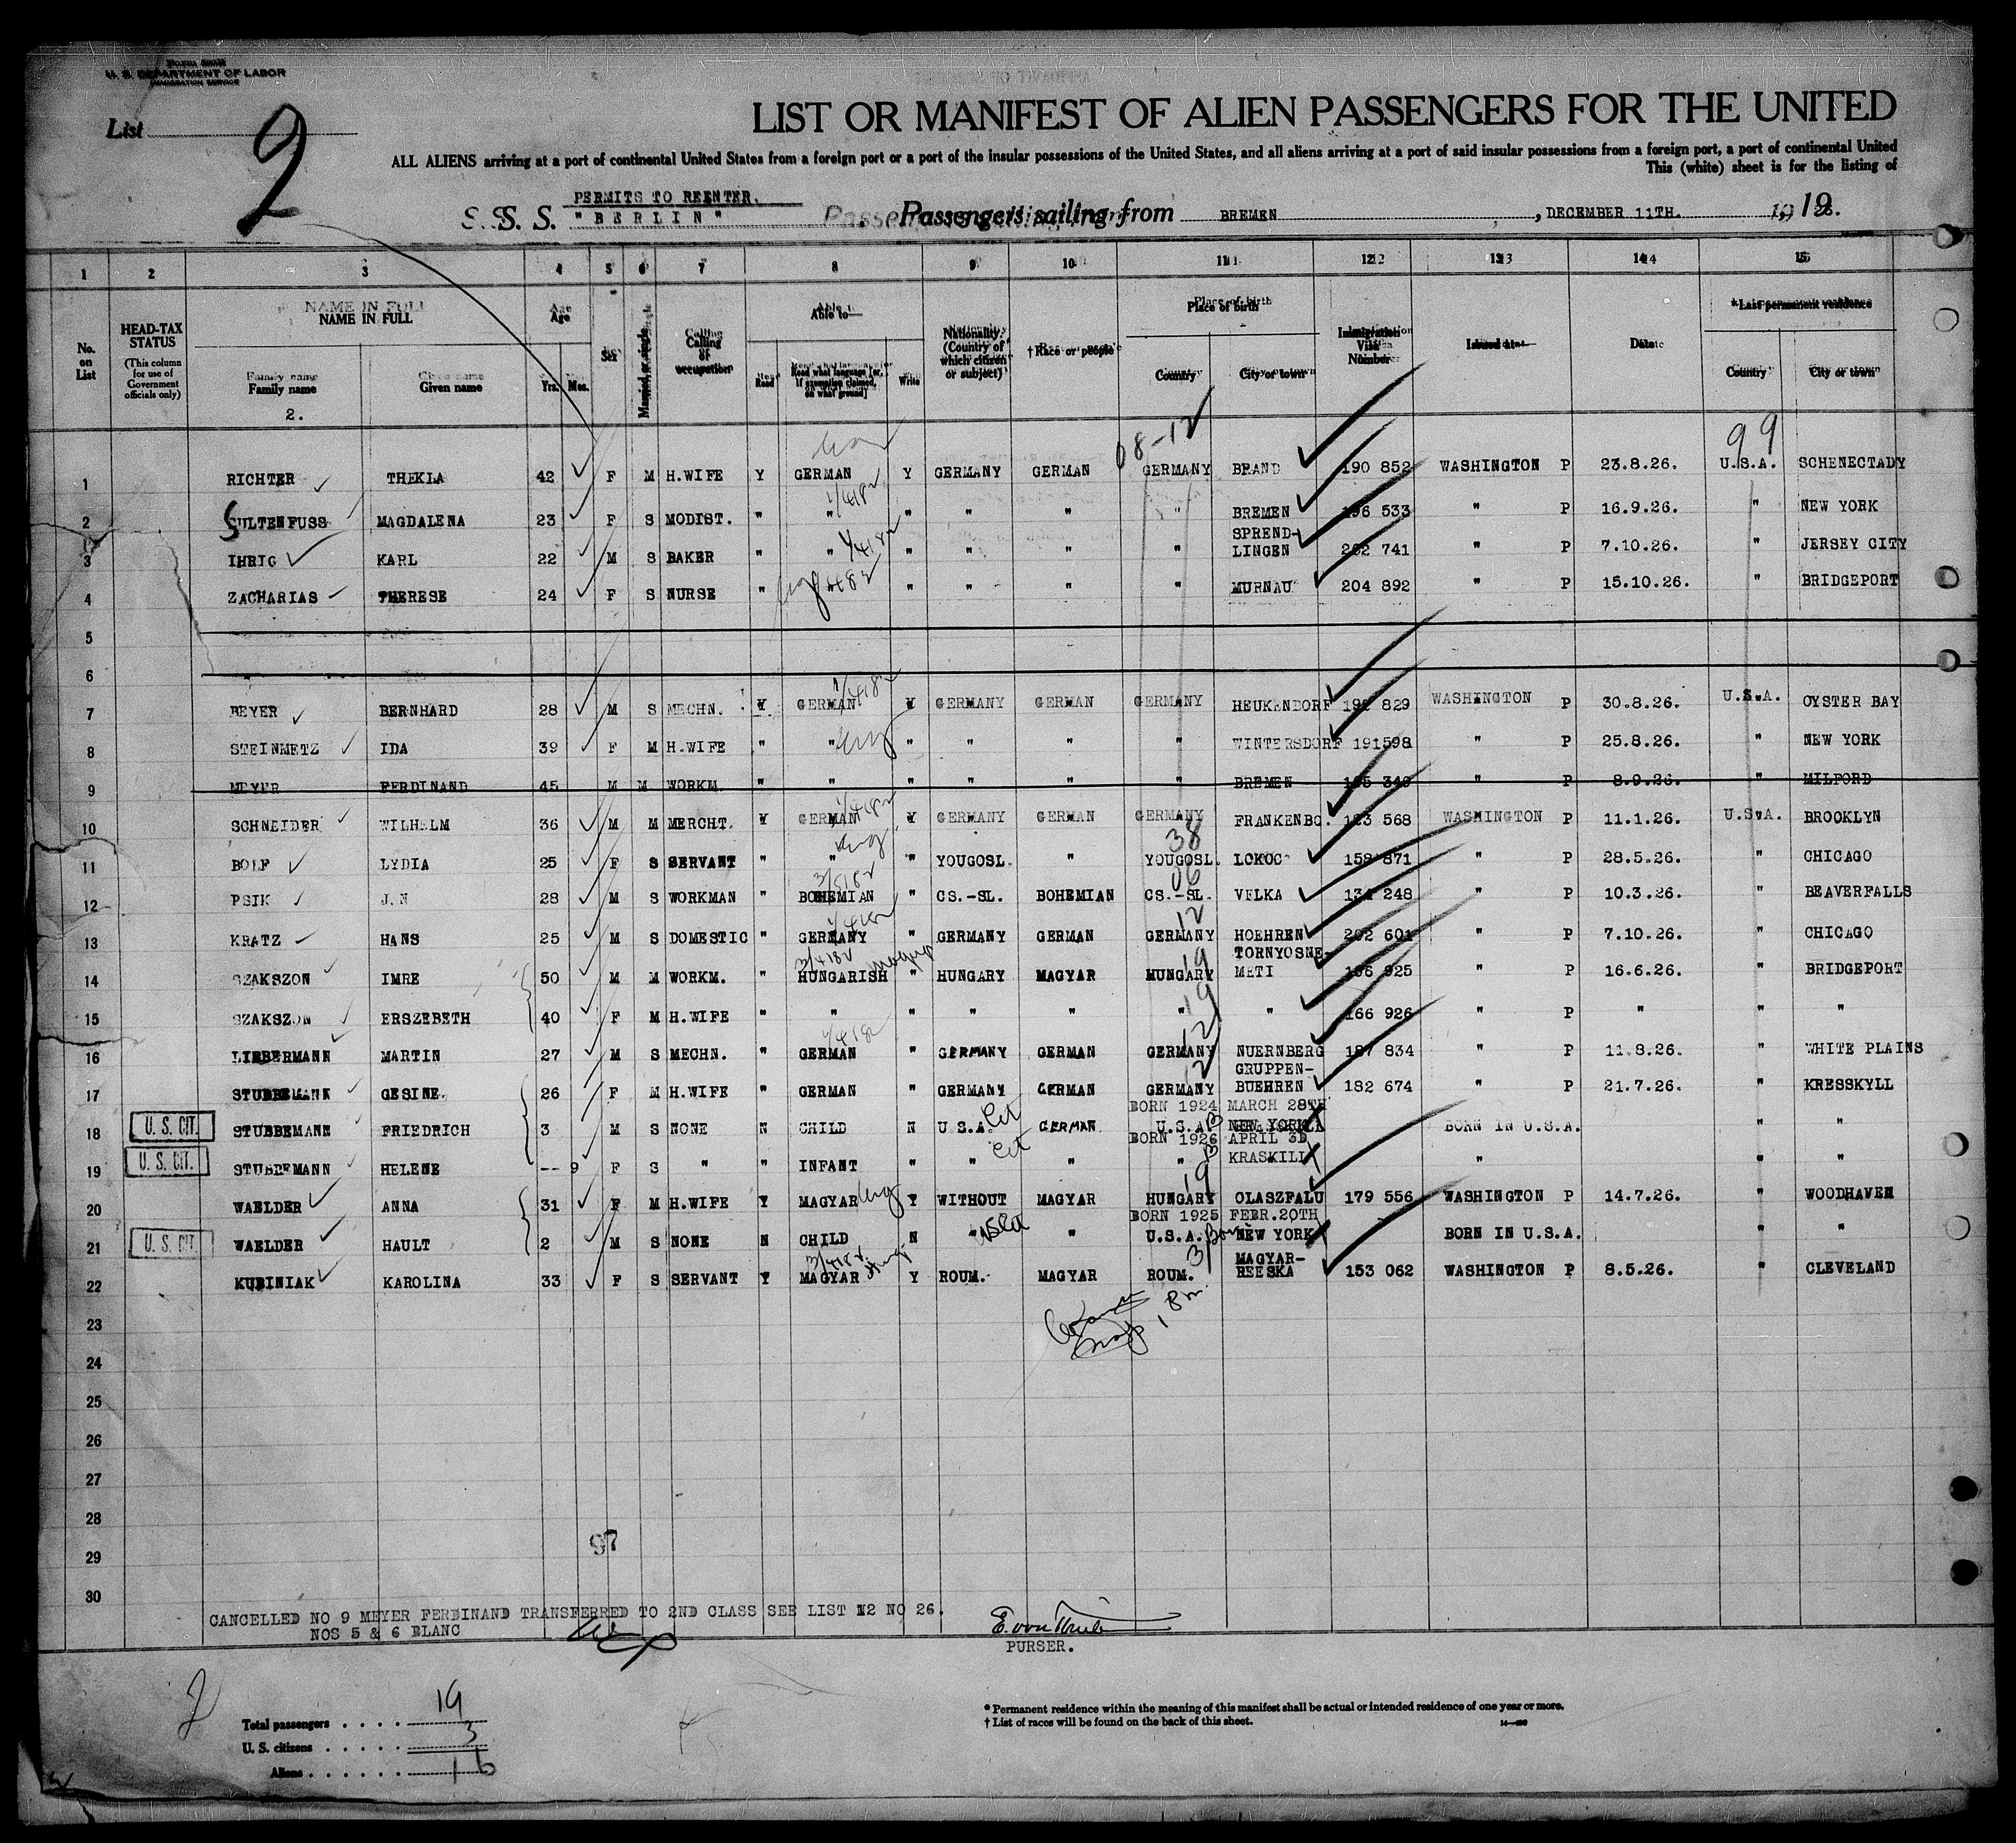 Form 500B
U. S. DEPARTMENT OF LABOR
IMMIGRATION SERVICE
List 2
LIST OR MANIFEST OF ALIEN PASSENGERS FOR THE UNITED
ALL ALIENS arriving at a port of continental United States from a foreign port or a port of the insular possessions of the United States, and all aliens arriving at a port of said insular possessions from a foreign port, a port of continental United
This (white) sheet is for the listing of
PERMITS TO REENTER.
S. S. "BERLIN" Passengers sailing from BREMEN, DECEMBER 11TH. 1926.
1 2 3 4 5 6 7 8 9 10 11 12 13 14 15
No. on List
HEAD-TAX STATUS (This column for use of Government officials only)
NAME IN FULL Family name Given name
2.
Age Yrs. Mos.
Sex
Married or single
Calling or occupation
Able to— Read Read what language [or, if exemption claimed, on what ground] Write
Nationality. (Country of which citizen or subject)
† Race or people
Place of birth Country City or town
Immigration Visa Number
Issued at—
Date
*Last permanent residence Country City or town
08-12 99
1 RICHTER THEKLA 42 F M H.WIFE Y GERMAN Y GERMANY GERMAN GERMANY BRAND 190 852 WASHINGTON P 23.8.26. U.S.A. SCHENECTADY
2 SULTENFUSS MAGDALENA 23 F S MODIST. " " " " " " BREMEN 196 533 " P 16.9.26. " NEW YORK
3 IHRIG KARL 22 M S BAKER " " " " " " SPREND-LINGEN 202 741 " P 7.10.26. " JERSEY CITY
4 ZACHARIAS THERESE 24 F S NURSE " " " " " " MURNAU 204 892 " P 15.10.26. " BRIDGEPORT
5
6
7 BEYER BERNHARD 28 M S MECHN. Y GERMAN Y GERMANY GERMAN GERMANY HEUKENDORF 192 829 WASHINGTON P 30.8.26. U.S.A. OYSTER BAY
8 STEINMETZ IDA 39 F M H.WIFE " " " " " " WINTERSDORF 191598 " P 25.8.26. " NEW YORK
9 MEYER FERDINAND 45 M M WORKM. " " " " " " BREMEN 195 349 " P 8.9.26. " MILFORD
10 SCHNEIDER WILHELM 36 M M MERCHT. Y GERMAN Y GERMANY GERMAN GERMANY FRANKENBG. 123 568 WASHINGTON P 11.1.26. U.S.A. BROOKLYN
38
11 BOLF LYDIA 25 F S SERVANT " " " YOUGOSL. " YOUGOSL. LOKOC 158 871 " P 28.5.26. " CHICAGO
06
12 PSIK J.N 28 M S WORKMAN " BOHEMIAN " CS.-SL. BOHEMIAN CS.-SL. VELKA 134 248 " P 10.3.26. " BEAVERFALLS
12
13 KRATZ HANS 25 M S DOMESTIC " GERMANY " GERMANY GERMAN GERMANY HOEHREN 202 601 " P 7.10.26. " CHICAGO
19
14 SZAKSZON IMRE 50 M M WORKM. " HUNGARISH " HUNGARY MAGYAR HUNGARY TORNYOSNE-METI 166 925 " P 16.6.26. " BRIDGEPORT
19
15 SZAKSZON ERSZEBETH 40 F M H.WIFE " " " " " " " 166 926 " P " " "
12
16 LIEBERMANN MARTIN 27 M S MECHN. " GERMAN " GERMANY GERMAN GERMANY NUERNBERG 187 834 " P 11.8.26. " WHITE PLAINS
12
17 STUBBEMANN GESINE. 26 F M H.WIFE " GERMAN " GERMANY GERMAN GERMANY GRUPPEN-BUEHREN 182 674 " P 21.7.26. " KRESSKYLL
BORN 1924 MARCH 28TH
U. S. CIT. 18 STUBBEMANN FRIEDRICH 3 M S NONE N CHILD N U.S.A. Cit GERMAN U.S.A. NEW YORK BORN IN U.S.A. " "
BORN 1926 APRIL 3D
U. S. CIT. 19 STUBBEMANN HELENE -- 9 F S " " INFANT " " Cit " " KRASKILL " " "
19
20 WAELDER ANNA 31 F M H.WIFE Y MAGYAR Y WITHOUT MAGYAR HUNGARY OLASZFALU 179 556 WASHINGTON P 14.7.26. " WOODHAVEN
BORN 1925 FEBR.20TH
U. S. CIT. 21 WAELDER HAULT 2 M S NONE N CHILD N " USCit " U.S.A. NEW YORK BORN IN U.S.A. " "
22 KUBINIAK KAROLINA 33 F S SERVANT Y MAGYAR Y ROUM. MAGYAR ROUM. MAGYAR-REESKA 153 062 WASHINGTON P 8.5.26. " CLEVELAND
23
24
25
26
27
28
29
30
97
CANCELLED NO 9 MEYER FERDINAND TRANSFERRED TO 2ND CLASS SEE LIST 12 NO 26.
NOS 5 & 6 BLANC
PURSER.
Total passengers . . . . 19
U. S. citizens . . . . . 3
Aliens . . . . . . 16
* Permanent residence within the meaning of this manifest shall be actual or intended residence of one year or more.
† List of races will be found on the back of this sheet.